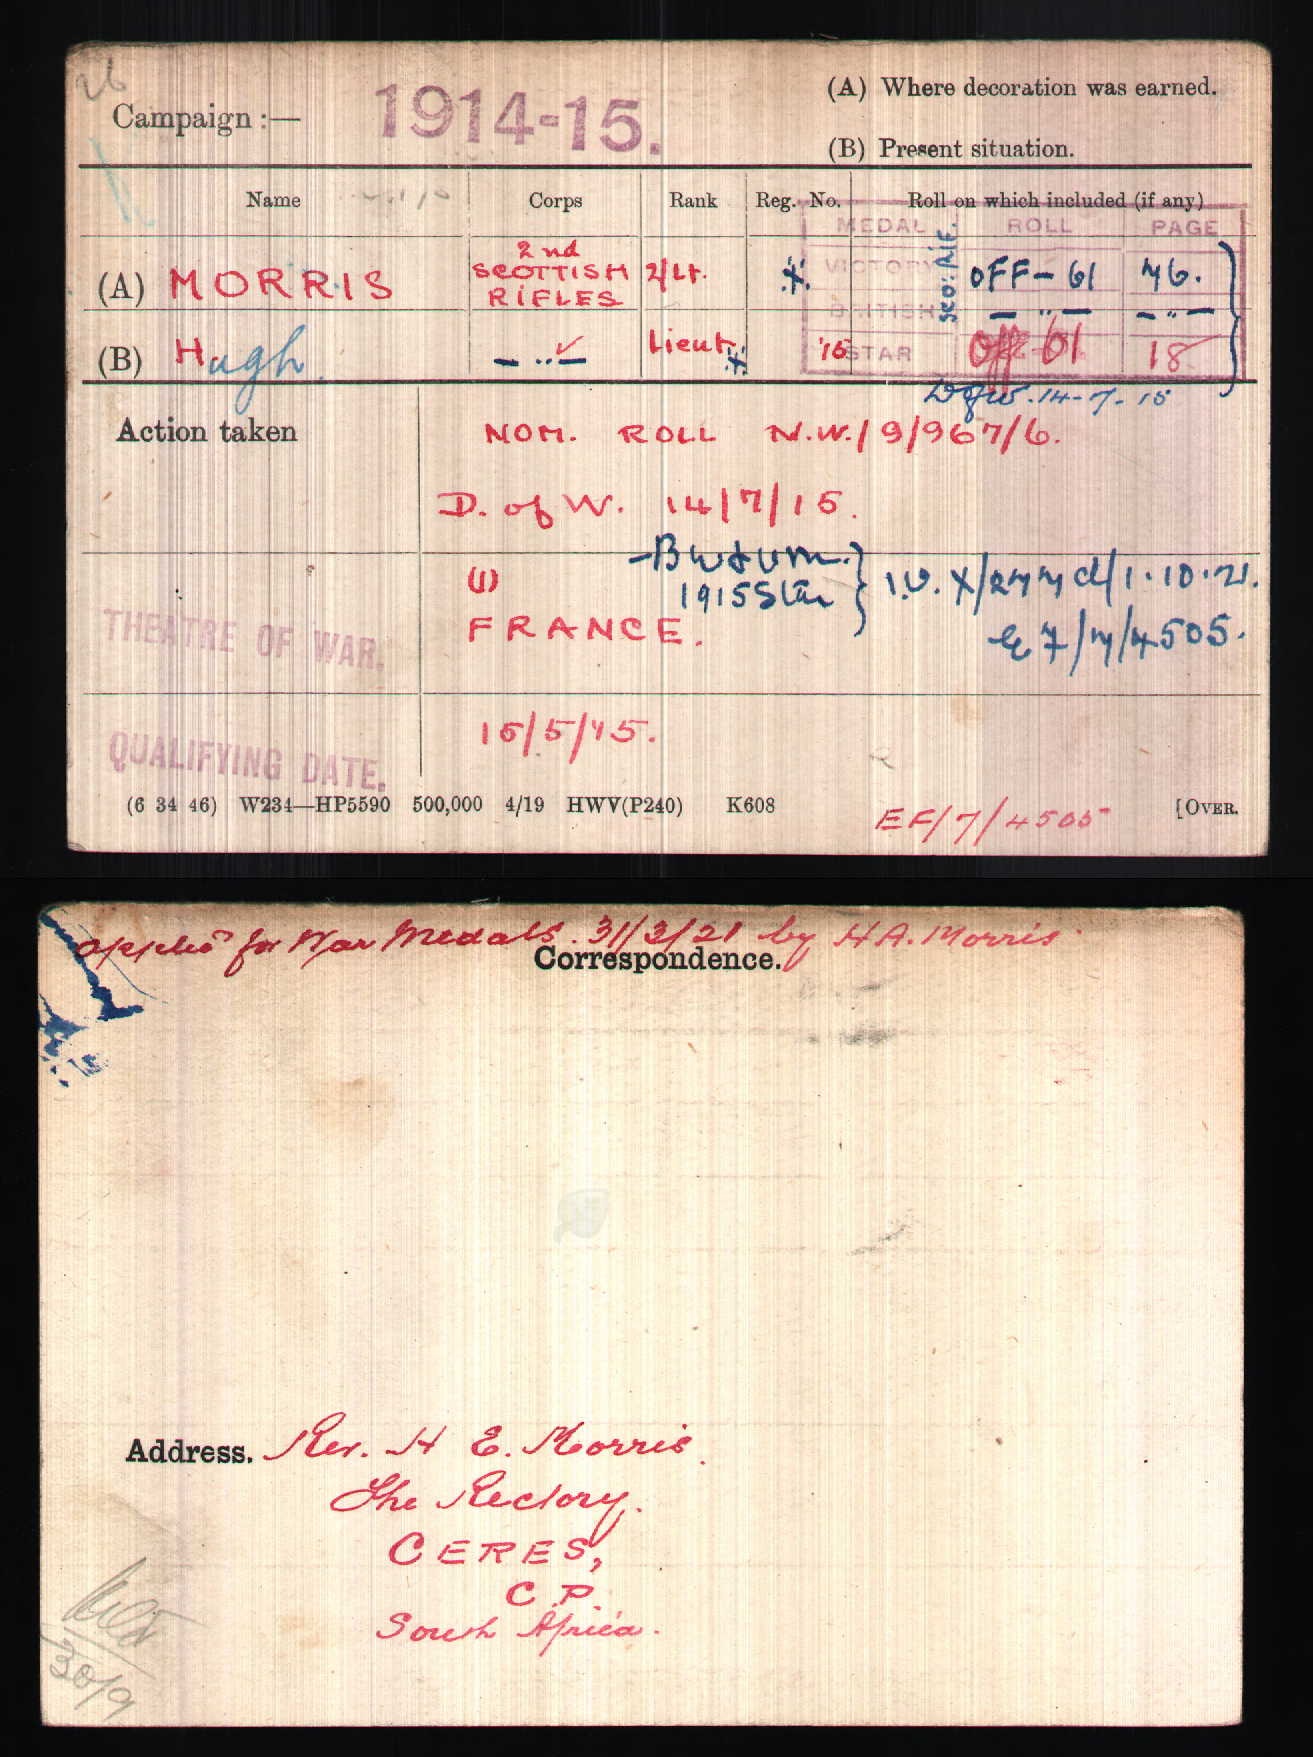 26
Campaign :— 1914-15.
(A) Where decoration was earned.
(B) Present situation.
Name Corps Rank Reg. No. Roll on which included (if any)
MEDAL ROLL PAGE
(A) MORRIS 2nd SCOTTISH RIFLES 2/Lt. VICTORY Sco: Rif. OFF-61 76.
BRITISH — " — — " —
(B) Hugh. — " — Lieut. '15 STAR Off-61 18
D of W. 14-7-15
Action taken NOM. ROLL N.W./9/967/6.
D. of W. 14/7/15.
BW & VM.
(1) 1915 Star } I.V.X/277d/1.10.21.
THEATRE OF WAR. FRANCE. E7/7/4505.
QUALIFYING DATE. 15/5/15.
(6 34 46) W234—HP5590 500,000 4/19 HWV(P240) K608 EF/7/4505 [OVER.
applied for War Medals. 31/3/21 by H.A. Morris
Correspondence.
Address. Rev. H E. Morris.
The Rectory.
CERES,
C.P.
South Africa.
30/9